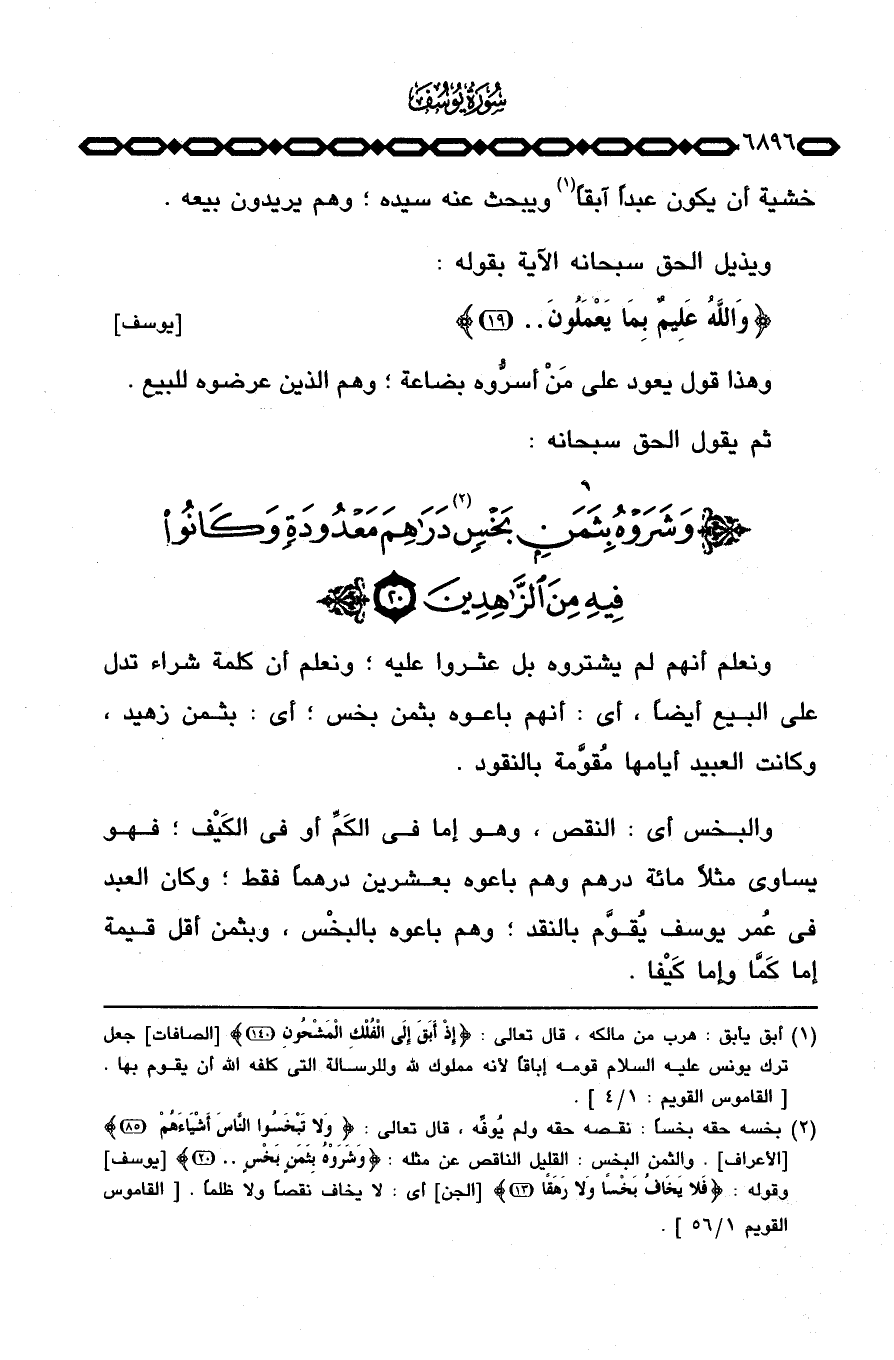 سُورَةُ يُوسُفَ
٦٨٩٦
خشية أن يكون عبداً آبقاً(١) ويبحث عنه سيده ؛ وهم يريدون بيعه .
ويذيل الحق سبحانه الآية بقوله :
﴿وَاللَّهُ عَلِيمٌ بِمَا يَعْمَلُونَ .. (١٩)﴾ [يوسف]
وهذا قول يعود على مَنْ أسرُّوه بضاعة ؛ وهم الذين عرضوه للبيع .
ثم يقول الحق سبحانه :
﴿وَشَرَوْهُ بِثَمَنٍ بَخْسٍ(٢) دَرَاهِمَ مَعْدُودَةٍ وَكَانُوا
فِيهِ مِنَ ٱلزَّاهِدِينَ ٢٠﴾
ونعلم أنهم لم يشتروه بل عثروا عليه ؛ ونعلم أن كلمة شراء تدل
على البيع أيضاً ، أى : أنهم باعوه بثمن بخس ؛ أى : بثمن زهيد ،
وكانت العبيد أيامها مُقوَّمة بالنقود .
والبخس أى : النقص ، وهو إما فى الكَمِّ أو فى الكَيْف ؛ فهو
يساوى مثلاً مائة درهم وهم باعوه بعشرين درهماً فقط ؛ وكان العبد
فى عُمر يوسف يُقوَّم بالنقد ؛ وهم باعوه بالبخْس ، وبثمن أقل قيمة
إما كَمَّا وإما كَيْفا .
(١) أبق يأبق : هرب من مالكه ، قال تعالى : ﴿إِذْ أَبَقَ إِلَى الْفُلْكِ الْمَشْحُونِ (١٤٠)﴾ [الصافات] جعل
ترك يونس عليه السلام قومه إباقاً لأنه مملوك لله وللرسالة التى كلفه الله أن يقوم بها .
[ القاموس القويم : ٤/١ ] .
(٢) بخسه حقه بخساً : نقصه حقه ولم يُوفِّه ، قال تعالى : ﴿ وَلا تَبْخَسُوا النَّاسَ أَشْيَاءَهُمْ (٨٥)﴾
[الأعراف] . والثمن البخس : القليل الناقص عن مثله : ﴿وَشَرَوْهُ بِثَمَنٍ بَخْسٍ .. (٢٠)﴾ [يوسف]
وقوله : ﴿فَلا يَخَافُ بَخْسًا وَلا رَهَقًا (١٣)﴾ [الجن] أى : لا يخاف نقصاً ولا ظلماً . [ القاموس
القويم ٥٦/١ ] .